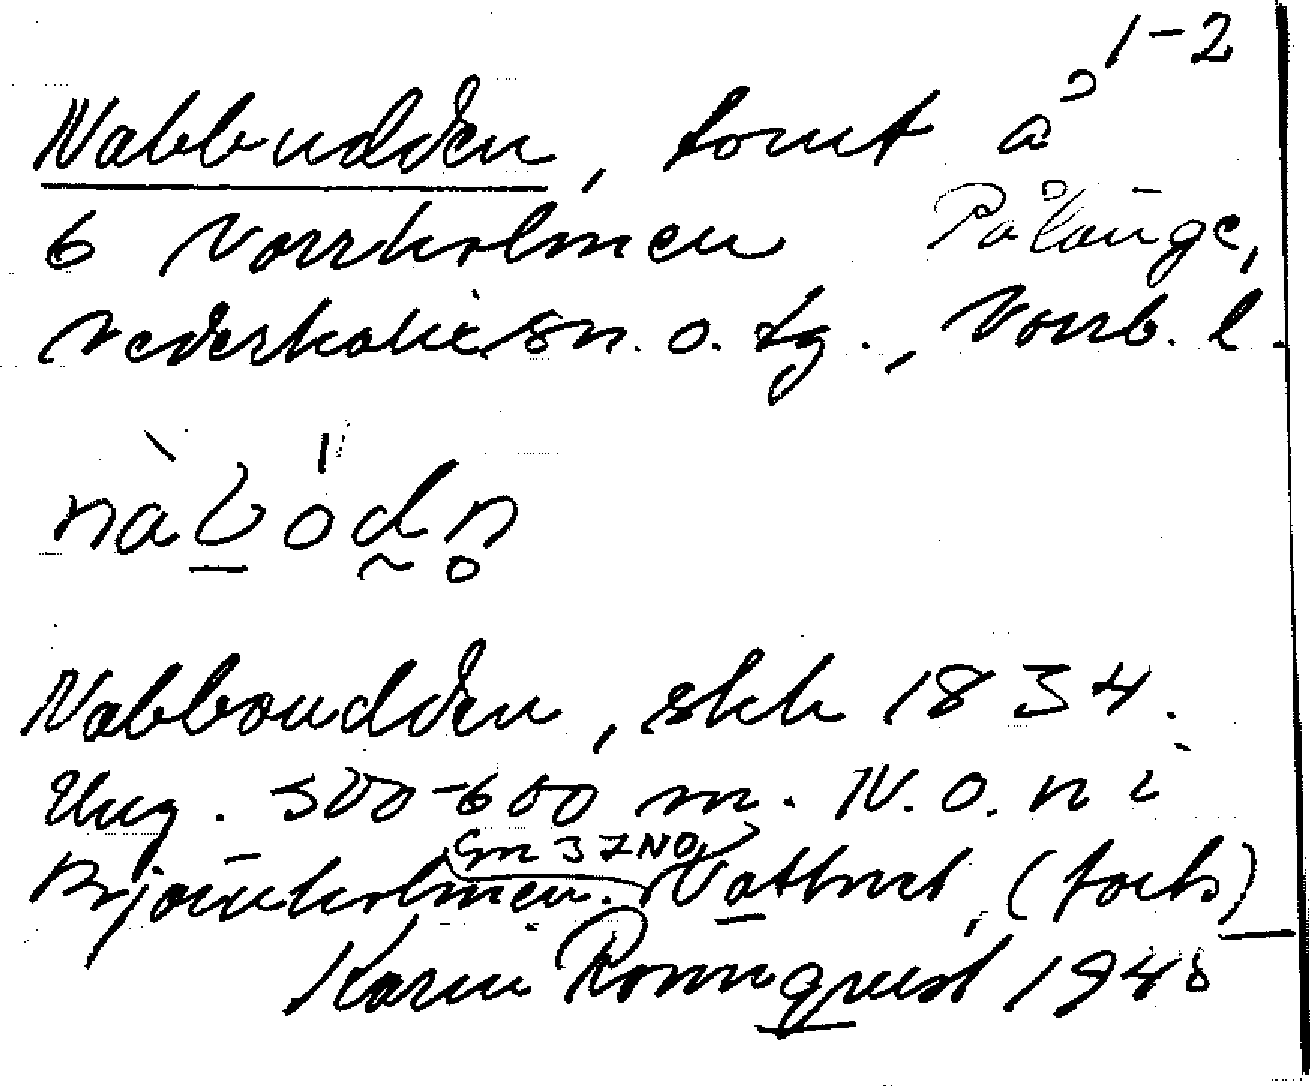 1-2
Nabbudden, tomt å
6 Norrholmen Pålänge,
Nederkalix sn. o. tg., Norrb. l.
nàbódn
Nabboudden, skk 1834.
Ung. 500-600 m. N.O. n i
(sm 3 ZNO)
Björnholmen. Vattnet, (forts)
Karin Rönnquist 1945